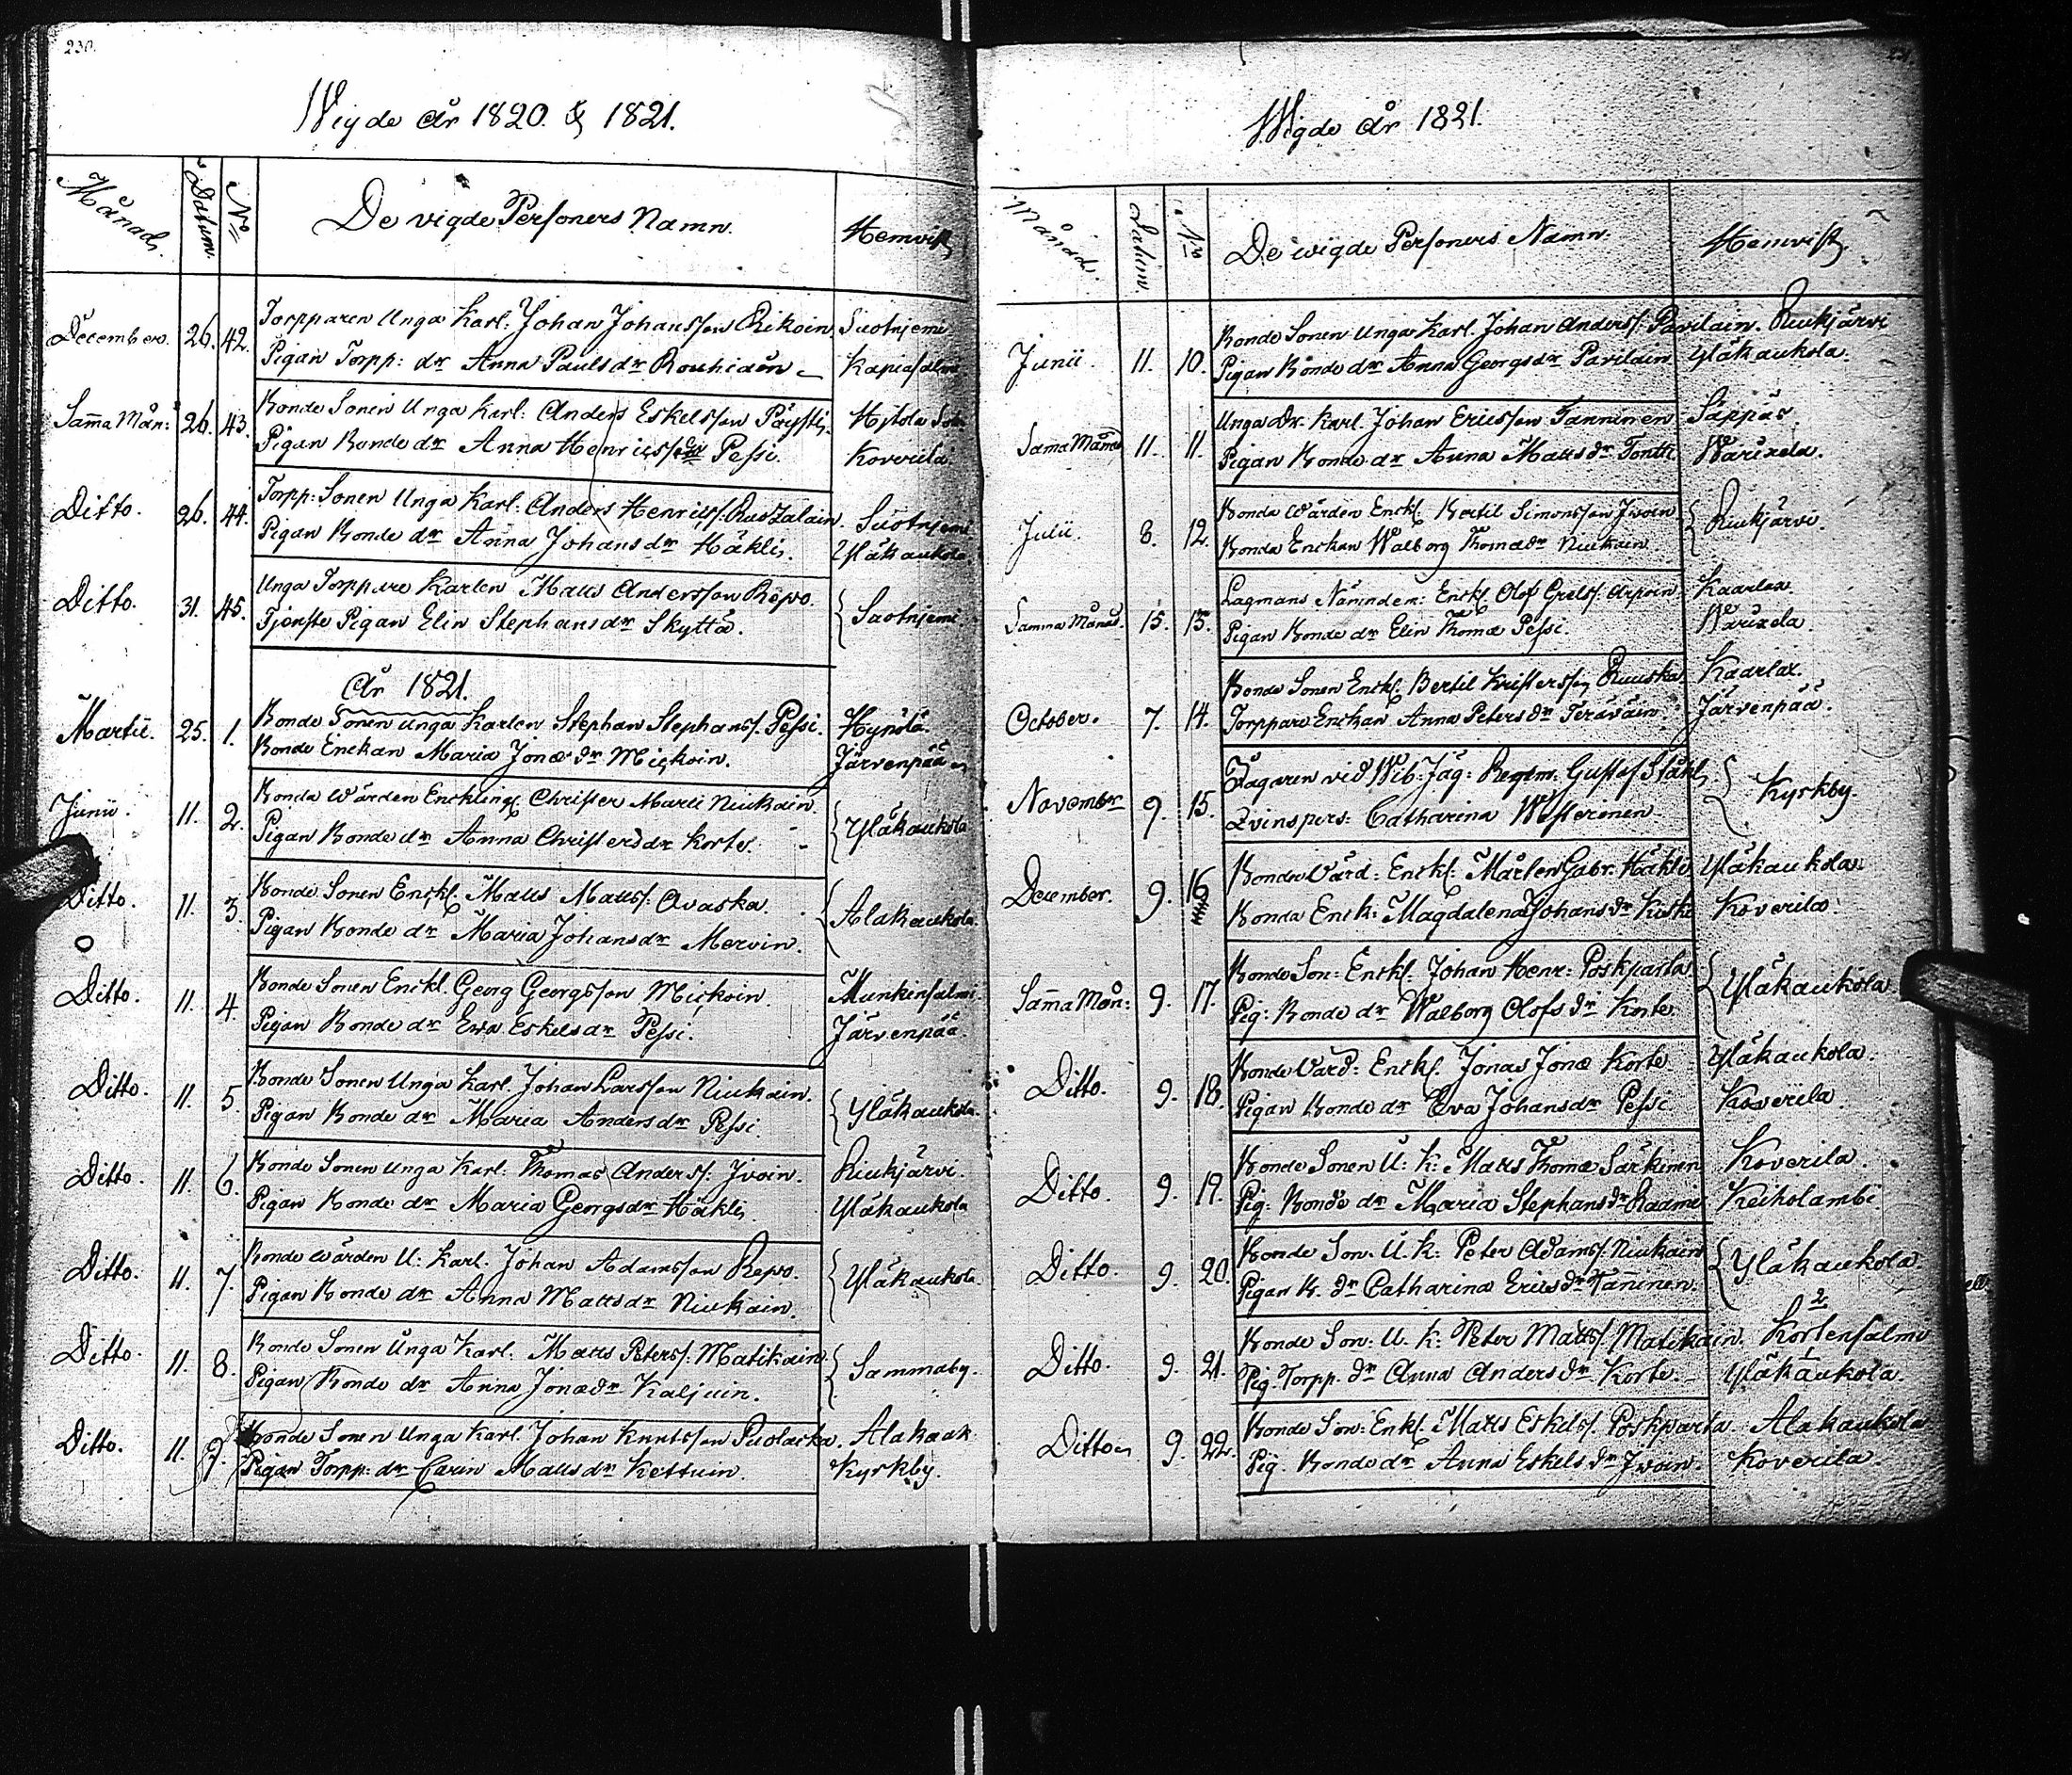 230.
Wigde år 1820. & 1821.
Månad. Datum. No De vigde Personers Namn. Hemvist
December. 26. 42. Torpparen Unga Karl: Johan Johansson Rikoin. Suotnjemi
Pigan Torpp: dr Anna Pauls dr Rouhiain Kapiasalmi
Sama Mån: 26. 43. Bonde Sonen Unga Karl: Anders Eskelsson
Pigan Bonde dr Anna Henrics dr Pessi. Koverila
Ditto. 26. 44. Torpp: Sonen Unga Karl. Anders Henrics. Suotnjemi
Pigan Bonde dr Anna Johans dr Häkli. Yläkaukola.
Ditto. 31. 45. Unga Torppare Karlen Matts Andersson Repo.
Tjenste Pigan Elin Stephans dr Skyttä. Suotnjemi
År 1821.
Martii. 25. 1. Bonde Sonen unga Karlen. Stephan Stephans. Pessi. Hynölä.
Bonde Enckan Maria Jonæ dr Mickoin. Järvenpää
Junii. 11. 2. Bonde Wärden Enckling Christer Marti Niukain.
Pigan Bonde dr Anna Christers dr Korte. Yläkaukola
Ditto. 11. 3. Bonde Sonen Enckl. Matts Matts. Avaska.
Pigan Bonde dr Maria Johans dr Mervin. Alakaukola
Ditto. 11. 4. Bonde Sonen Enckl. Georg Georgsson Mickoin Munkinsalmi.
Pigan Bonde dr Ewa Eskels dr Pessi. Järvenpää.
Ditto. 11. 5. Bonde Sonen Unga Karl. Johan Larsson Niukain.
Pigan Bonde dr Maria Anders dr Pessi. Yläkaukola.
Ditto. 11. 6. Bonde Sonen unga Karl: Thomas Anders. Ivoin. Riukjärvi.
Pigan Bonde dr Maria Georgs dr Häkli Yläkaukola
Ditto. 11. 7. Bonde Wärden U: Karl. Johan Adamsson Repo.
Pigan Bonde dr Anna Matts dr Niukain. Yläkaukola.
Ditto. 11. 8. Bonde Sonen Unga Karl. Matts Peters. Matikain.
Pigan Bonde dr Anna Jonæ dr Kaljuin. Sammaby.
Ditto. 11. 9. Bonde Sonen Unga Karl. Johan Knutsson Puolacka. Alakauk
Pigan Torpp: dr Carin Matts dr Kettuin. Kyrkby.
Wigde år 1821.
Månad. Datum. No De wigde Personers Namn: Hemvist
Junii. 11. 10. Bonde Sonen Unga Karl. Johan Anders. Pavilain. Riukjärvi
Pigan Bonde dr Anna Georgs dr Pavilain Yläkaukola.
Sama Månad 11. 11. Unga Dr. Karl. Johan Ericsson Tanninen Säppäs
Pigan Bonde dr Anna Matts dr Tontti
Julii. 8. 12. Bonde Wärden Enckl. Bertil Simonsson Ivoin
Bonde Enckan Walborg Thomæ dr Niukain Riukjärvi.
Samma Månad. 15. 13. Lagmans Nämnden: Enckl. Olof Grels. Arpoin Kaarlax
Pigan Bonde dr Elin Thomæ Pessi.
October. 7. 14. Bonde Sonen Enckl. Bertil Kristersson Ruuska Kaarlax.
Torppare Enckan Anna Peters dr Teräväin. Järvenpää.
November 9. 15. Jagaren vid Wib: Jäg: Regem: Gustaf Ståhl
Qvinspers: Catharina Westerinen Kyrkby
December. 9. 16 Bonde Wärd: Enckl: Mårten Gabr: Häkli Yläkaukola.
Bonde Enck: Magdalena Johans dr Koverila
Sama Mån: 9. 17. Bonde Son: Enckl. Johan Henr: Poskparta
Pig: Bonde dr Walborg Olofs dr Korte. Yläkaukola
Ditto. 9. 18. Bonde Värd: Enckl. Jonas Jonæ Korte Yläkaukola.
Pigan Bonde dr Eva Johans dr Pessi Koverila.
Ditto. 9. 19. Bonde Sonen U: K: Matts Thomæ Särkinen Koverila.
Pig: Bonde dr Maria Stephans dr Raami Keikolambi
Ditto. 9. 20. Bonde Son. U. K: Peter Adams. Niukain
Pigan B. dr Catharina Erics dr Täninen. Yläkaukola.
Ditto. 9. 21. Bonde Son: U. K: Peter Matts. Matikain. Kortensalmi
Pig. Torpp. dr Anna Anders dr Korte. Yläkaukola.
Ditto 9. 22. Bonde Son: Enkl. Matts Eskels. Poskparta. Alakaukola
Pig. Bonde dr Anna Eskels dr Ivoin. Koverila.